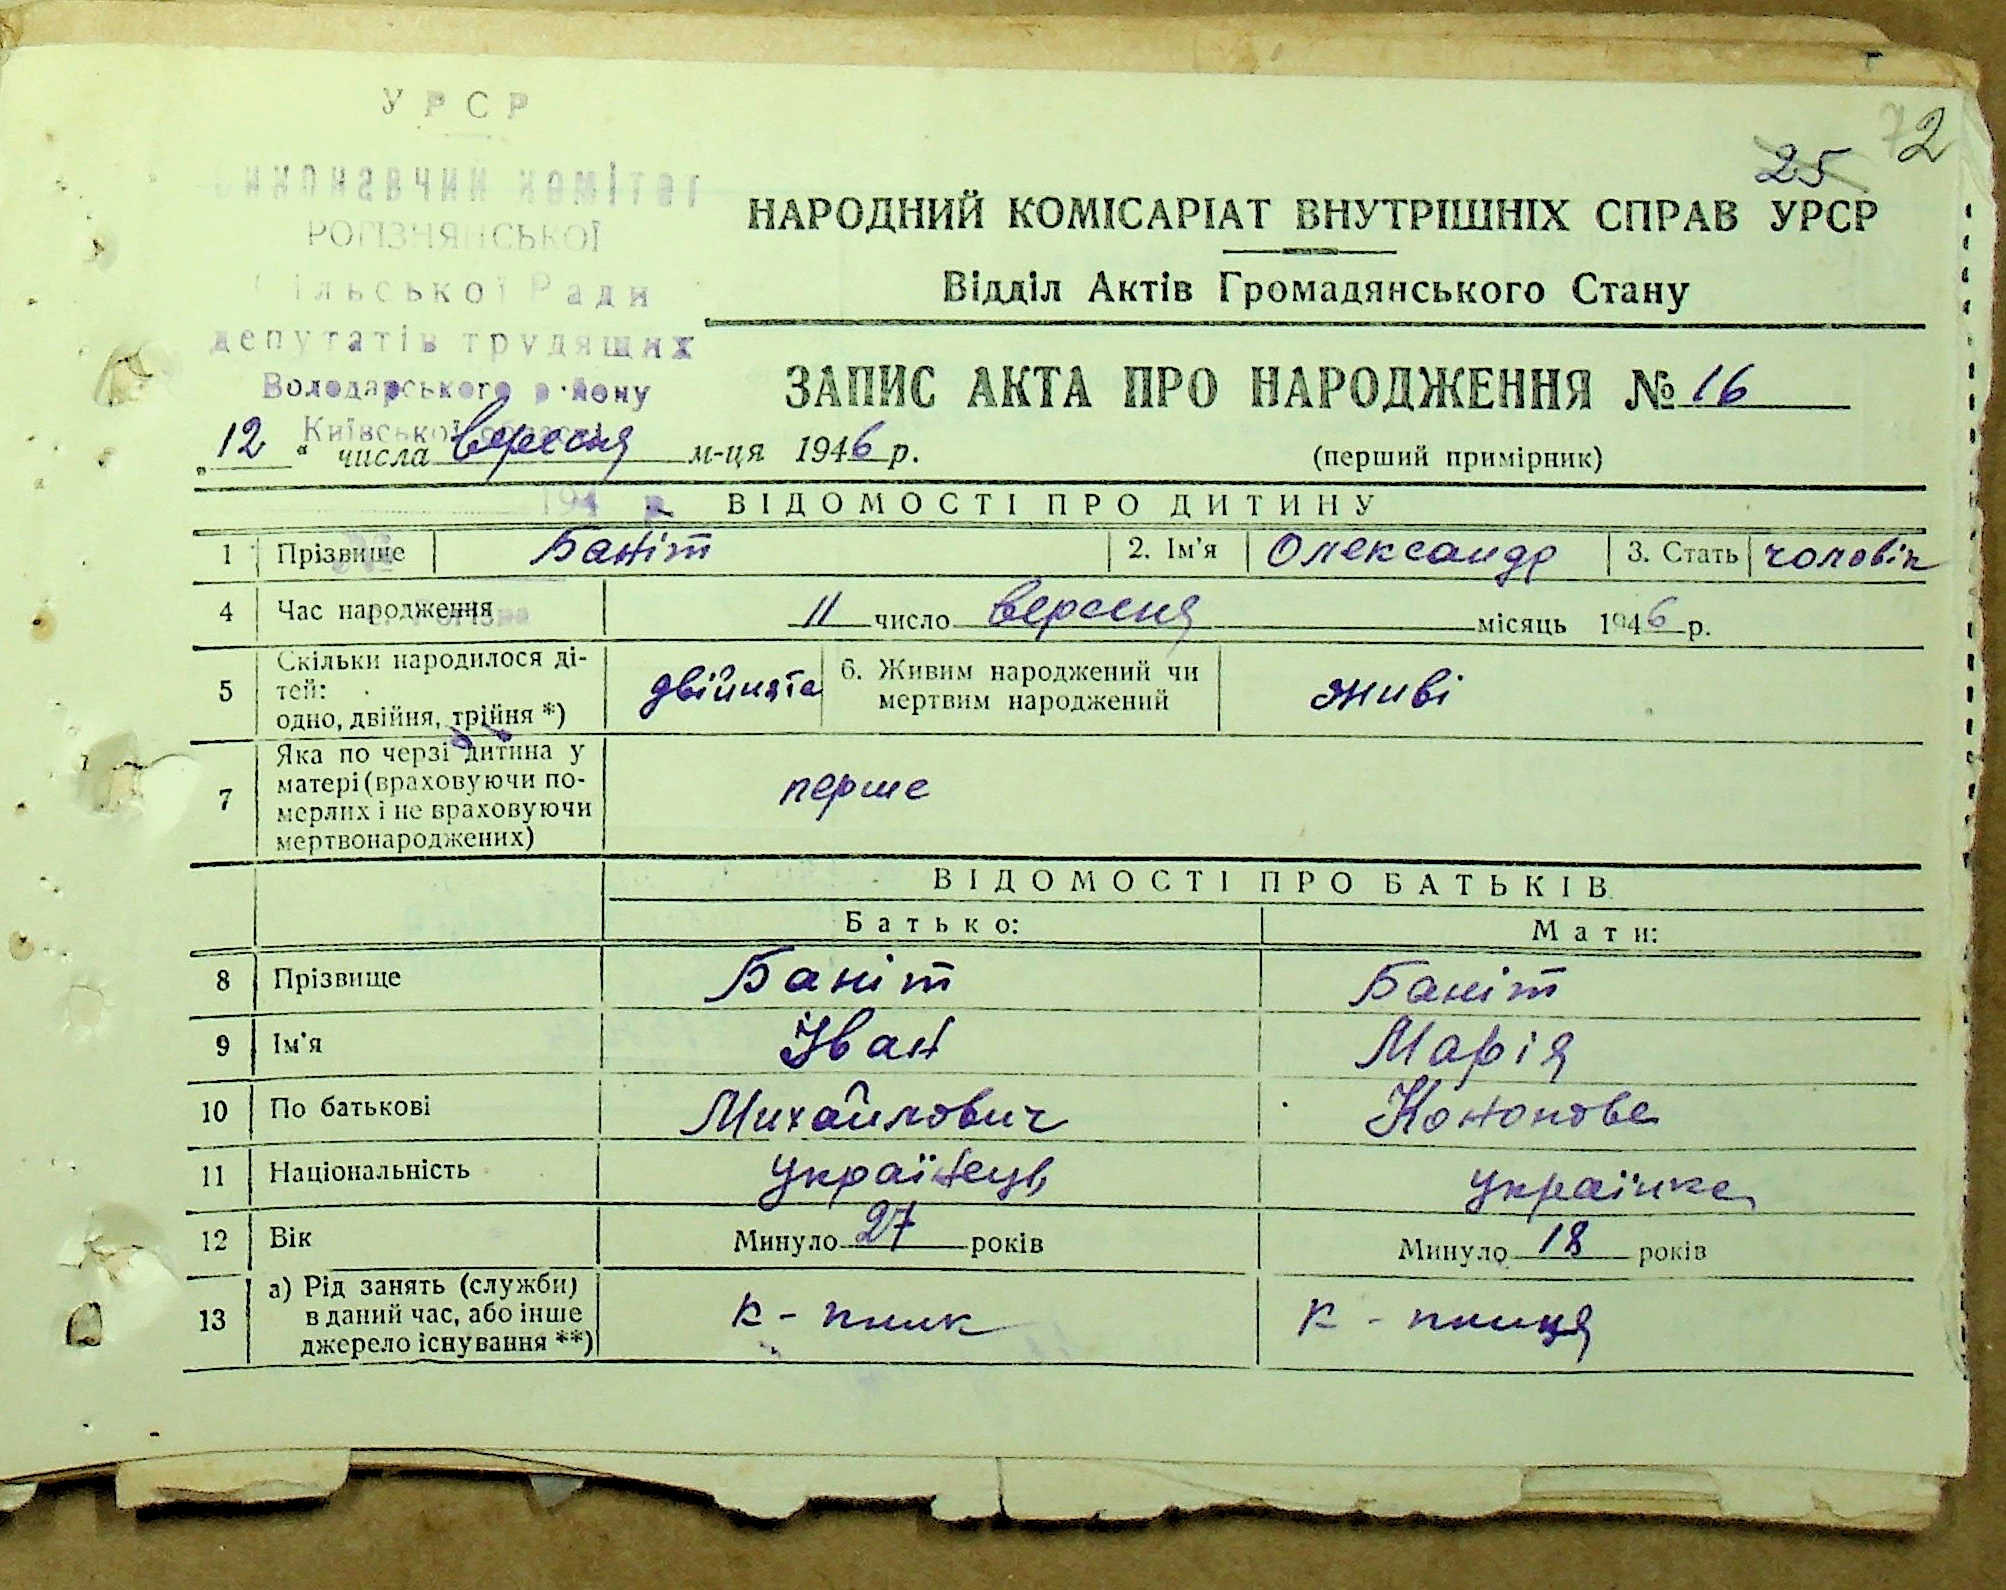 72
25
УРСР
виконавчий комітет
РОГІЗНЯНСЬКОЇ
Сільської Ради
депутатів трудящих
Володарського району
Київської області
194 р.
НАРОДНИЙ КОМІСАРІАТ ВНУТРІШНІХ СПРАВ УРСР
Відділ Актів Громадянського Стану
ЗАПИС АКТА ПРО НАРОДЖЕННЯ № 16
„12“ числа вересня м-ця 1946 р.
(перший примірник)
ВІДОМОСТІ ПРО ДИТИНУ
1 Прізвище Баніт 2. Ім'я Олександр 3. Стать чоловік
4 Час народження 11 число вересня місяць 1946 р.
5 Скільки народилося ді-
тей:
одно, двійня, трійня *) двійнята 6. Живим народжений чи
мертвим народжений живі
7 Яка по черзі дитина у
матері (враховуючи по-
мерлих і не враховуючи
мертвонароджених) перше
ВІДОМОСТІ ПРО БАТЬКІВ
Батько: Мати:
8 Прізвище Баніт Баніт
9 Ім'я Іван Марія
10 По батькові Михайлович Кононова
11 Національність Українець українка
12 Вік Минуло 27 років Минуло 18 років
13 а) Рід занять (служби)
в даний час, або інше
джерело існування **) к-пник к-пниця